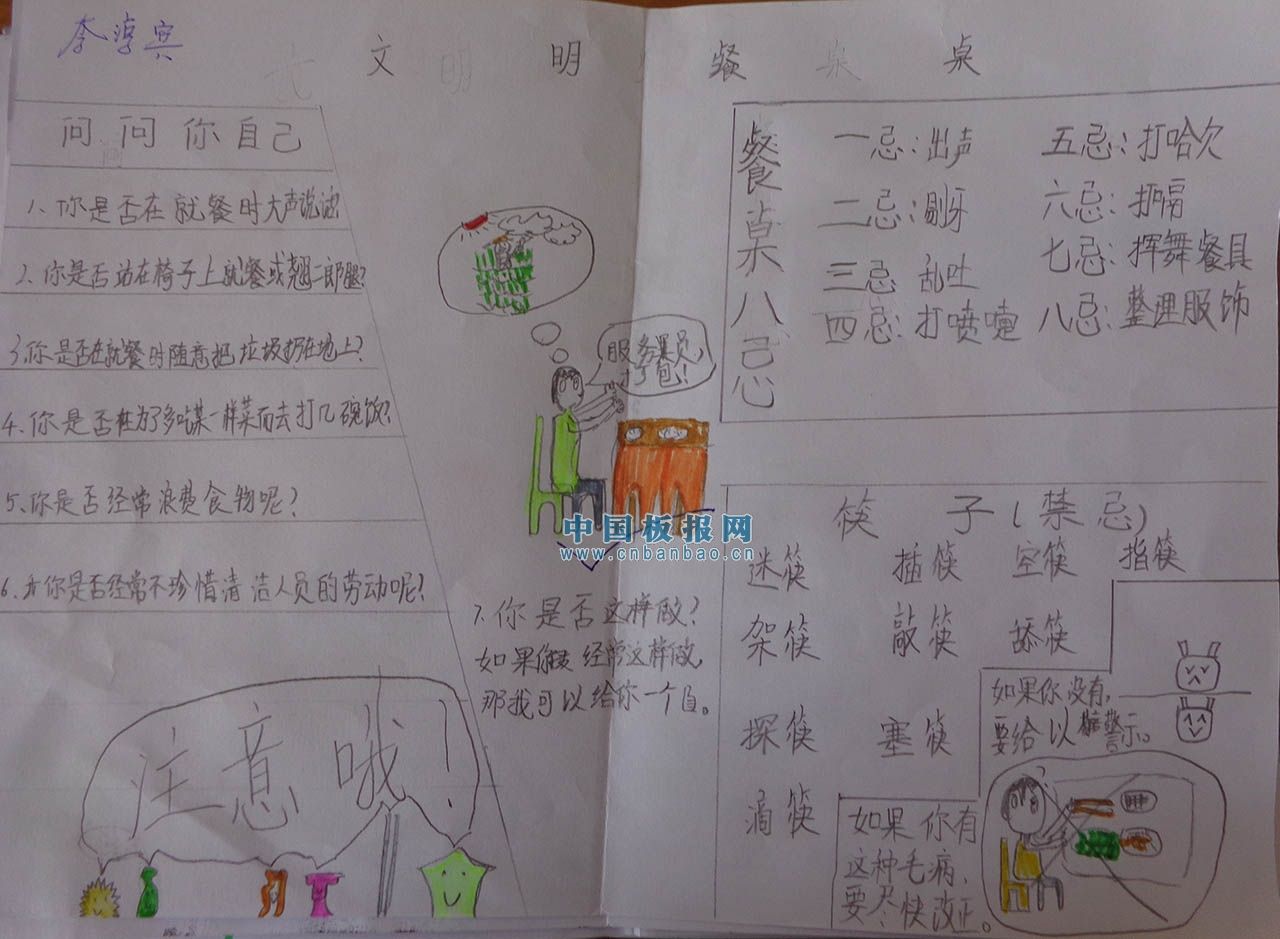 李淳宾
文明餐桌
问问你自己
1、你是否在就餐时大声说话?
2、你是否站在椅子上就餐或翘二郎腿?
3、你是否在就餐时随意把垃圾扔在地上?
4、你是否在为了多吃某一样菜而去打几碗饭?
5、你是否经常浪费食物呢?
6、你是否经常不珍惜清洁人员的劳动呢?
注意哦!
服务员,
打包!
7、你是否这样做?
如果你经常这样做,
那我可以给你一个
中国板报网
www.cnbanbao.cn
餐桌八忌
一忌:出声
二忌:剔牙
三忌 乱吐
四忌:打喷嚏
五忌:打哈欠
六忌:打嗝
七忌:挥舞餐具
八忌:整理服饰
筷子(禁忌)
迷筷 插筷 空筷 指筷
架筷 敲筷 舔筷
探筷 塞筷
滴筷
如果你没有,
要给以警示。
如果你有
这种毛病,
要尽快改正。